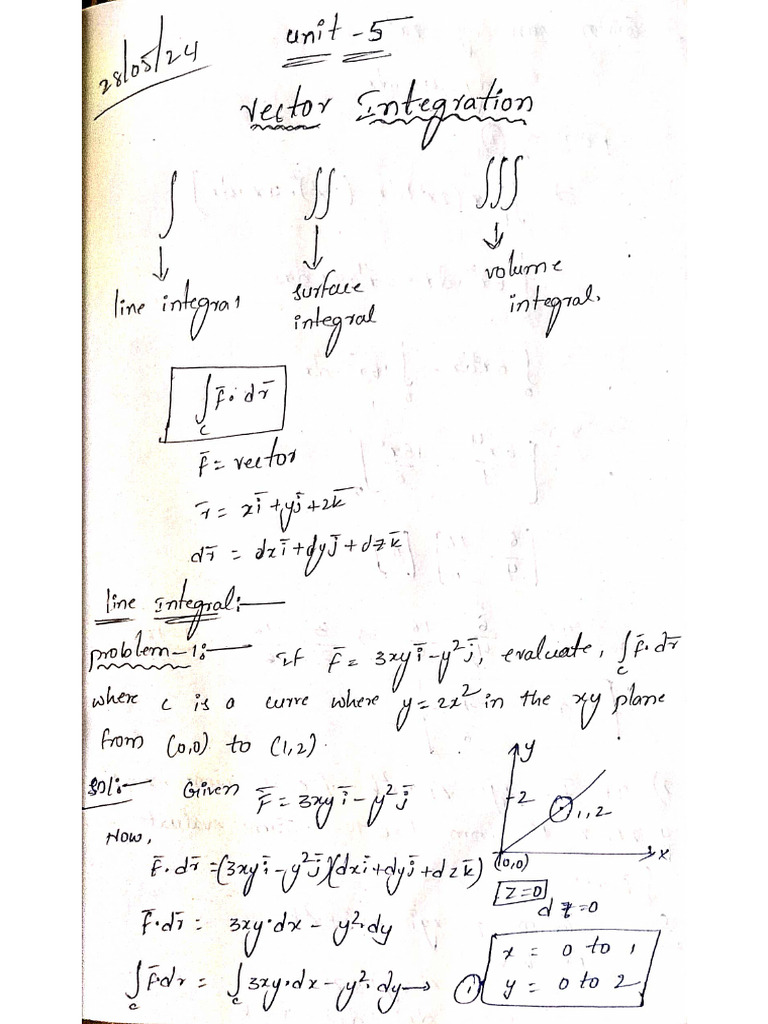 28/05/24
unit - 5
Vector Integration
∫ ∬ ∭
↓ ↓ ↓
line integral surface integral volume integral.
∫_c F̄. dr̄
F̄ = vector
r̄ = xī+yj̄+zk̄
dr̄ = dxī+dyj̄+dzk̄
line Integral:—
problem-1:— If F̄ = 3xyī-y²j̄, evaluate, ∫_c F̄. dr̄
where c is a curve where y=2x² in the xy plane
from (0,0) to (1,2).
Sol:— Given F̄ = 3xyī-y²j̄
Now,
F̄. dr̄ =(3xyī-y²j̄)(dxī+dyj̄+dzk̄)
F̄.dr̄ = 3xy.dx - y².dy
∫_c F̄.dr = ∫_c 3xy.dx-y².dy → ①
y
2
1,2
(0,0)
x
z=0
dz=0
x = 0 to 1
y = 0 to 2